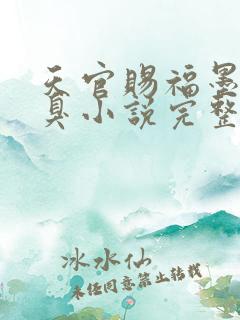 天官赐福墨
真小说完整
冰水仙
未经同意禁止转载